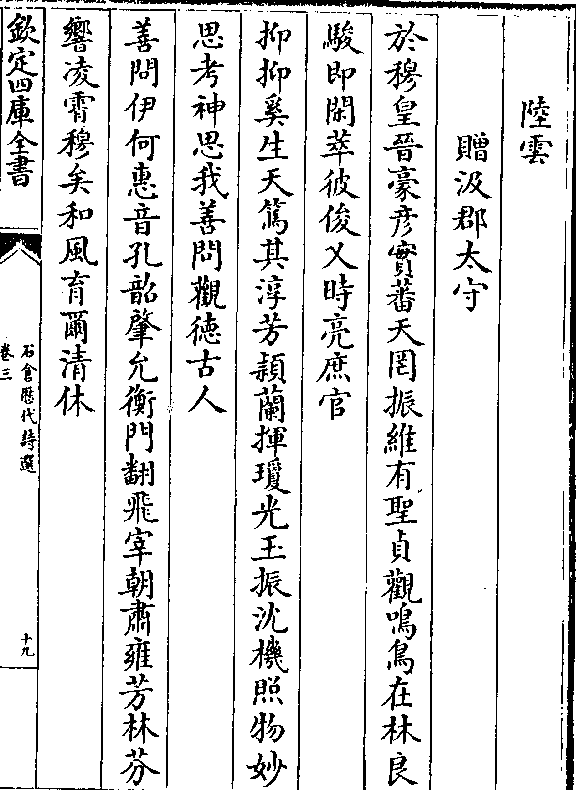 陸雲
贈汲郡太守
於穆皇晉豪彦實蕃天罔振維有聖貞觀鳴鳥在林良
駿即閑萃彼俊乂時亮庶官
抑抑奚生天篤其淳芳頴蘭揮瓊光玉振沈機照物妙
思考神思我善問觀徳古人
善問伊何惠音孔韶肇允衡門翻飛宰朝肅雍芳林芬
響凌霄穆矣和風育爾清休
欽定四庫全書
石倉歴代詩選
卷三
十九